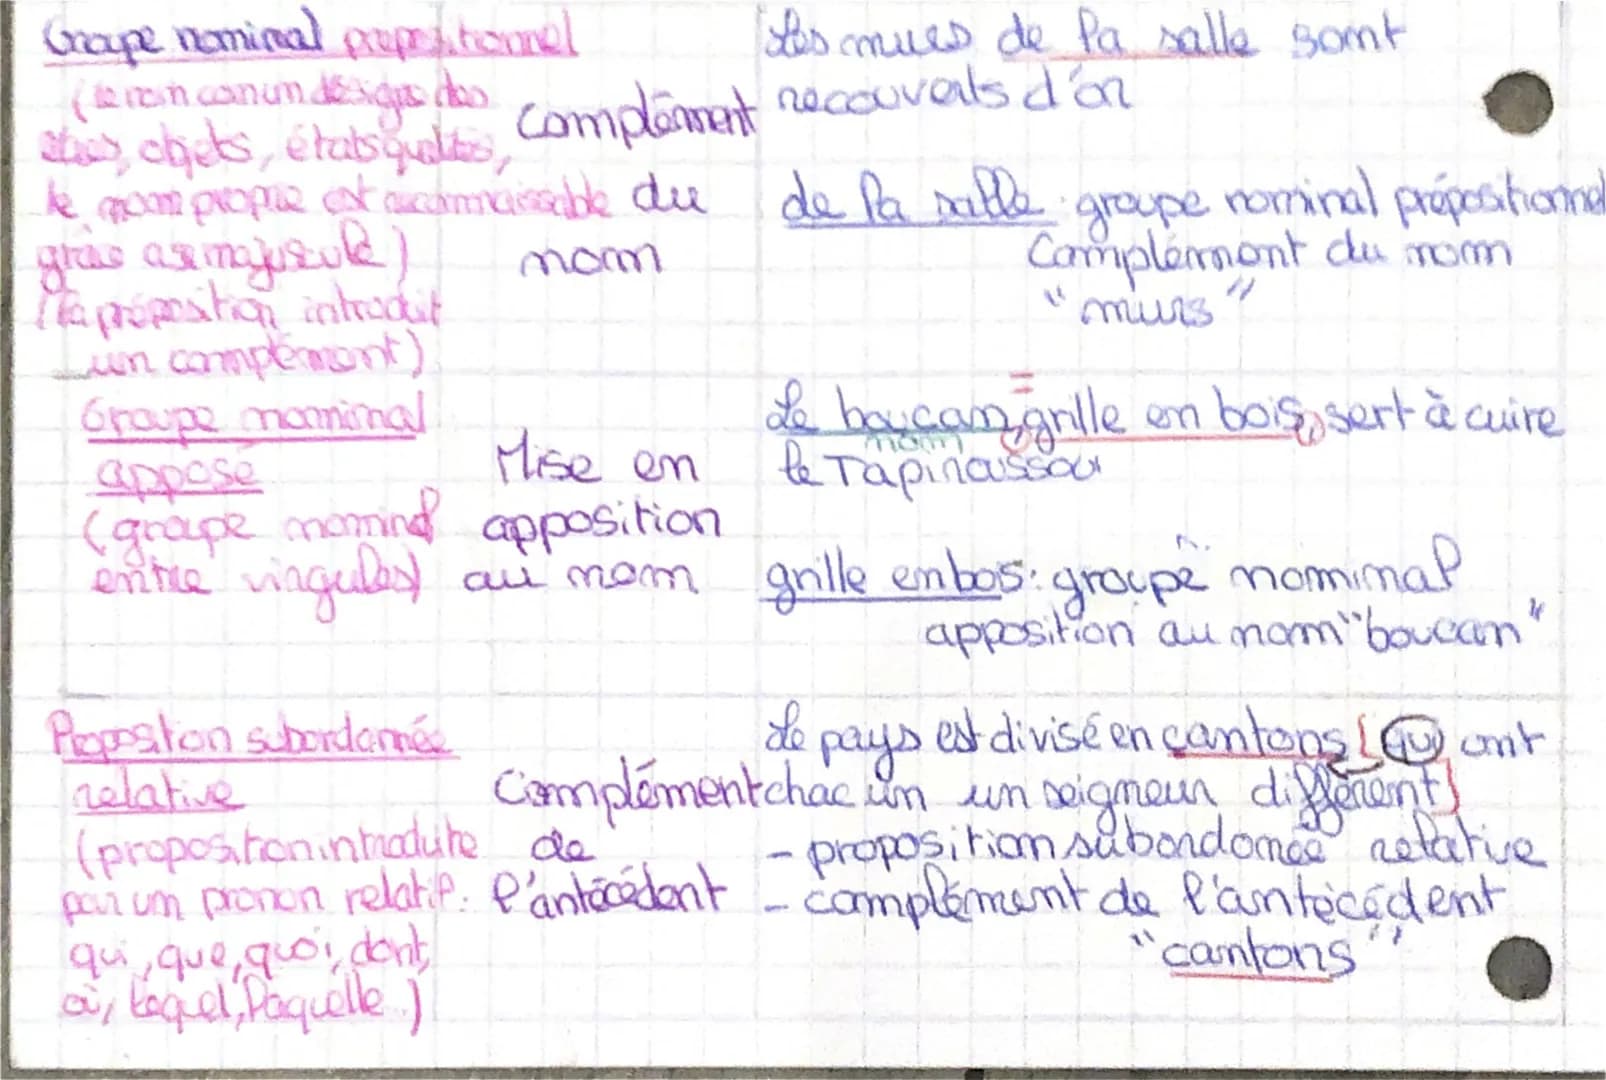 Groupe nominal prépositionnel
(le nom commun désigne des
êtres, objets, états, qualités,
le nom propre est reconnaissable
grâce à sa majuscule)
(la préposition introduit
un complément)
Complément
du
nom
Les murs de la salle sont
recouverts d'or
de la salle : groupe nominal prépositionnel
Complément du nom
"murs"
Groupe nominal
apposé
(groupe nominal
entre virgules)
Mise en
apposition
au nom
=
Le boucan, grille en bois, sert à cuire
nom
le Tapinassou
grille en bos : groupe nominal
apposition au nom "boucan"
Proposition subordonnée
relative
(proposition introduite
par un pronom relatif :
qui, que, quoi, dont,
où, lequel, laquelle...)
Complément
de
l'antécédent
Le pays est divisé en cantons [qui ont
chacun un seigneur différent]
- proposition subordonnée relative
- complément de l'antécédent
"cantons"